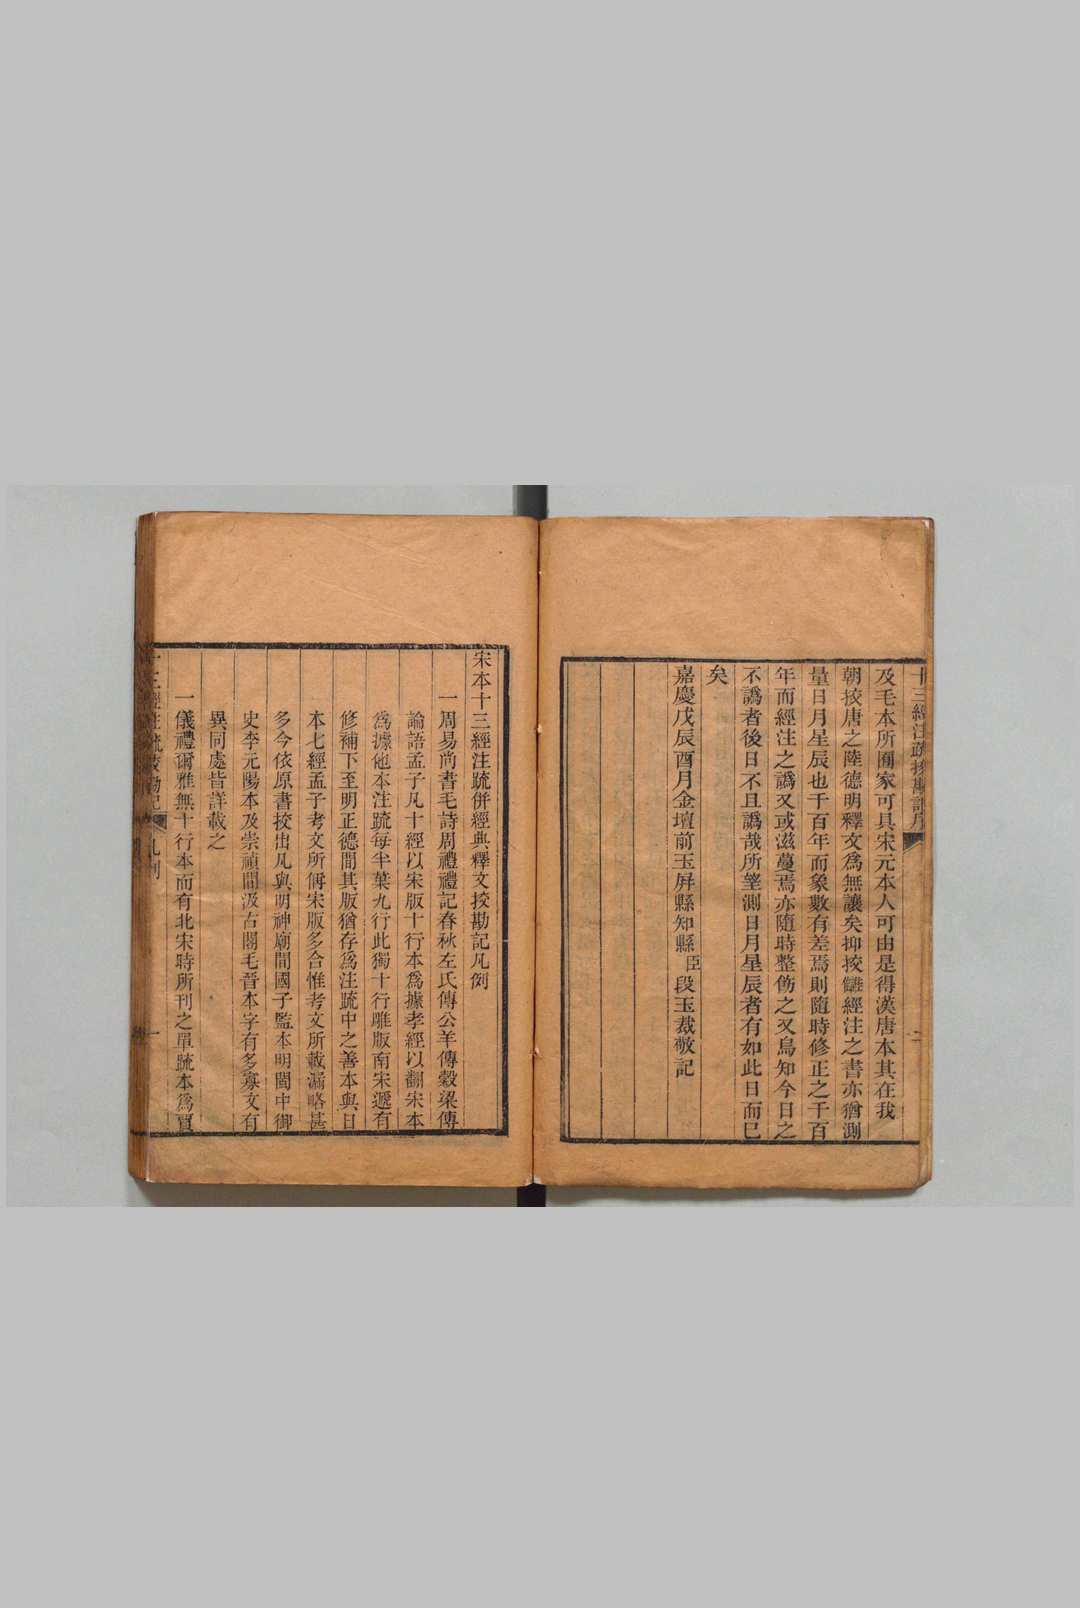 十三經注疏挍勘記序
二
及毛本所圍家可具宋元本人可由是得漢唐本其在我
朝挍唐之陸德明釋文爲無讓矣抑挍讎經注之書亦猶測
量日月星辰也千百年而象數有差焉則隨時修正之千百
年而經注之譌又或滋蔓焉亦隨時整飭之又烏知今日之
不譌者後日不且譌哉所望測日月星辰者有如此日而已
矣
嘉慶戊辰酉月金壇前玉屏縣知縣臣段玉裁敬記
宋本十三經注疏併經典釋文挍勘記凡例
一周易尚書毛詩周禮禮記春秋左氏傳公羊傳穀梁傳
論語孟子凡十經以宋版十行本爲據孝經以翻宋本
爲據他本注疏每半葉九行此獨十行雕版南宋遞有
修補下至明正德間其版猶存爲注疏中之善本與日
本七經孟子考文所偁宋版多合惟考文所載漏略甚
多今依原書挍出凡與明神廟間國子監本明閩中御
史李元陽本及崇禎間汲古閣毛晉本字有多寡文有
異同處皆詳載之
一儀禮爾雅無十行本而有北宋時所刊之單疏本爲賈
十三經注疏挍勘記
凡例
一